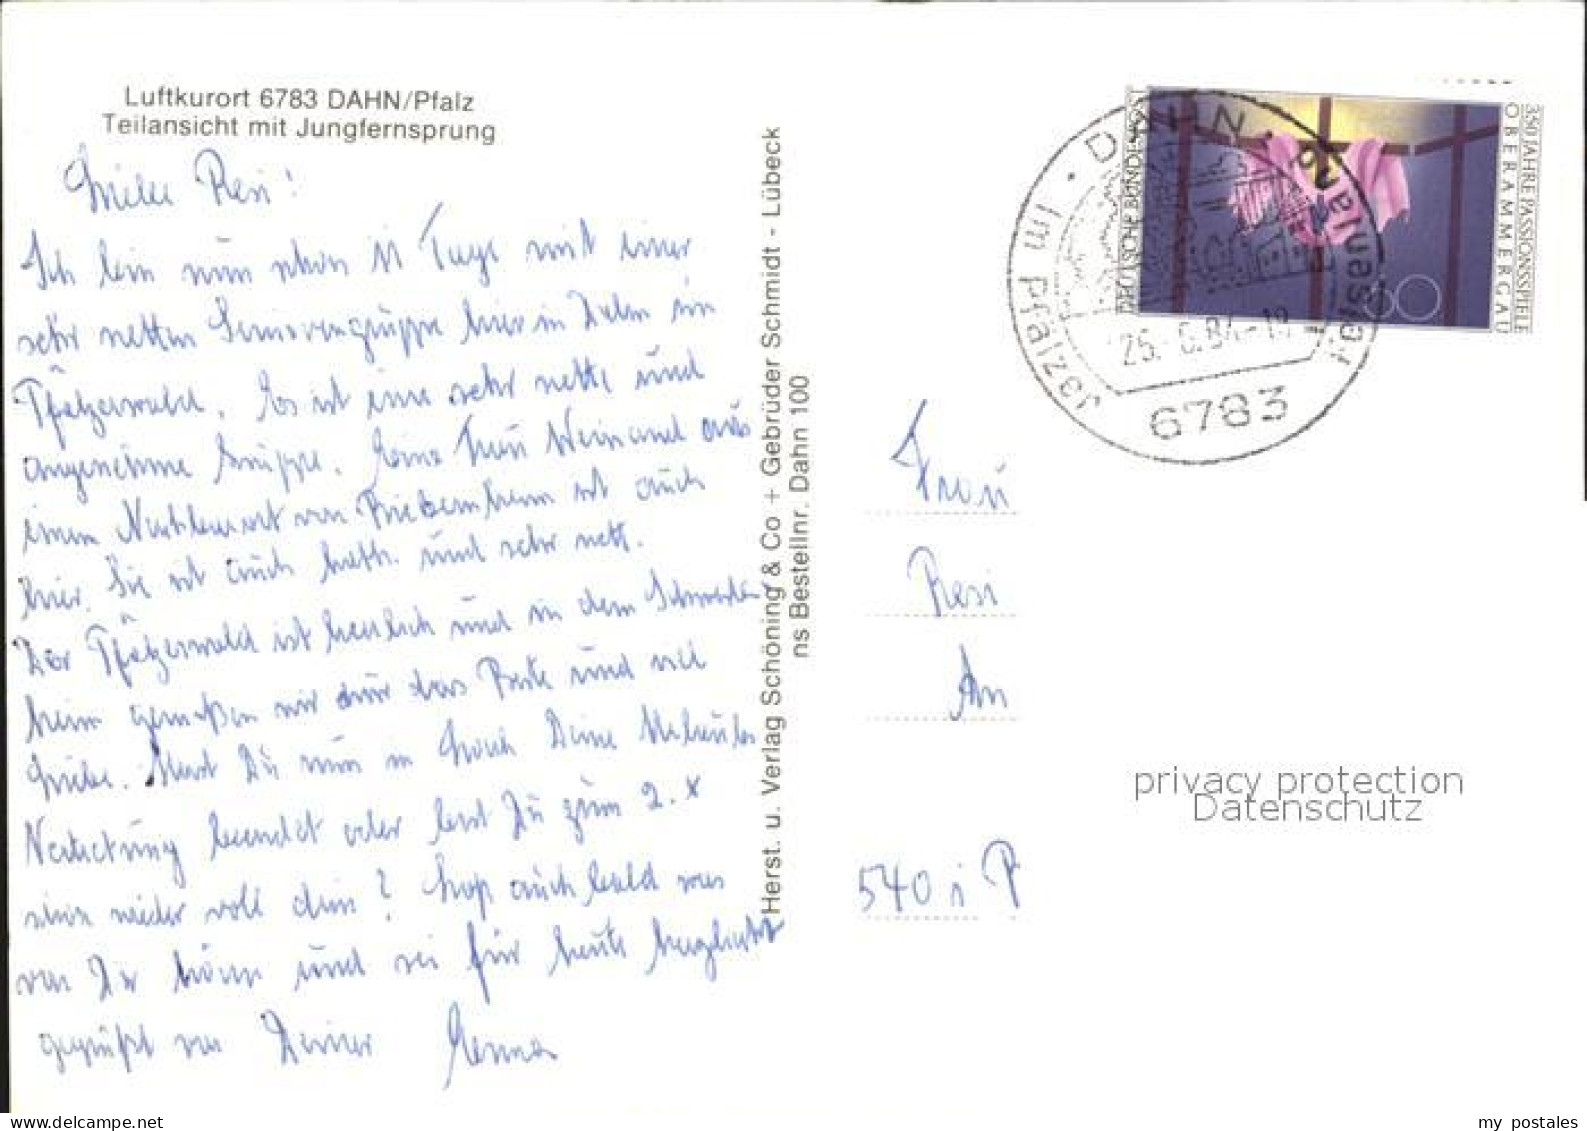 Luftkurort 6783 DAHN/Pfalz
Teilansicht mit Jungfernsprung
Resi!
Ich bin nun schon 11 Tage mit einer
sehr netten Seniorengruppe hier in Dahn im
Pfälzerwald. Es ist eine sehr nette und
angenehme Gruppe. Eine Frau Weinand aus
einem Nachbarort von ist auch
hier. Sie ist auch kath. und sehr nett.
Der Pfälzerwald ist herrlich und in dem Schwestern
heim genießen wir nur das Beste und viel
Liebe. Hast Du nun in Deine
beendet oder bist Du zum 2. x
schon wieder voll drin? auch bald was
von Dir hören und sei für heute herzlichst
gegrüßt von Deiner
Herst. u. Verlag Schöning & Co + Gebrüder Schmidt - Lübeck
ns Bestellnr. Dahn 100
DEUTSCHE BUNDESPOST
350 JAHRE PASSIONSSPIELE
OBERAMMERGAU
60
DAHN
Im Pfälzer
Felsenland
6783
Frau
Resi
An
540 i P
privacy protection
Datenschutz
my postales